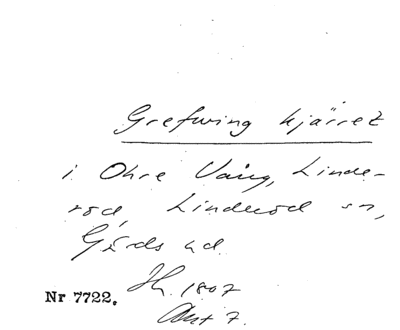 Grefwing kjärret
i Ohre Vång, Linde-
röd, Linderöd sn,
Gärds hd.
Sh. 1807
Akt 7.
Nr 7722.